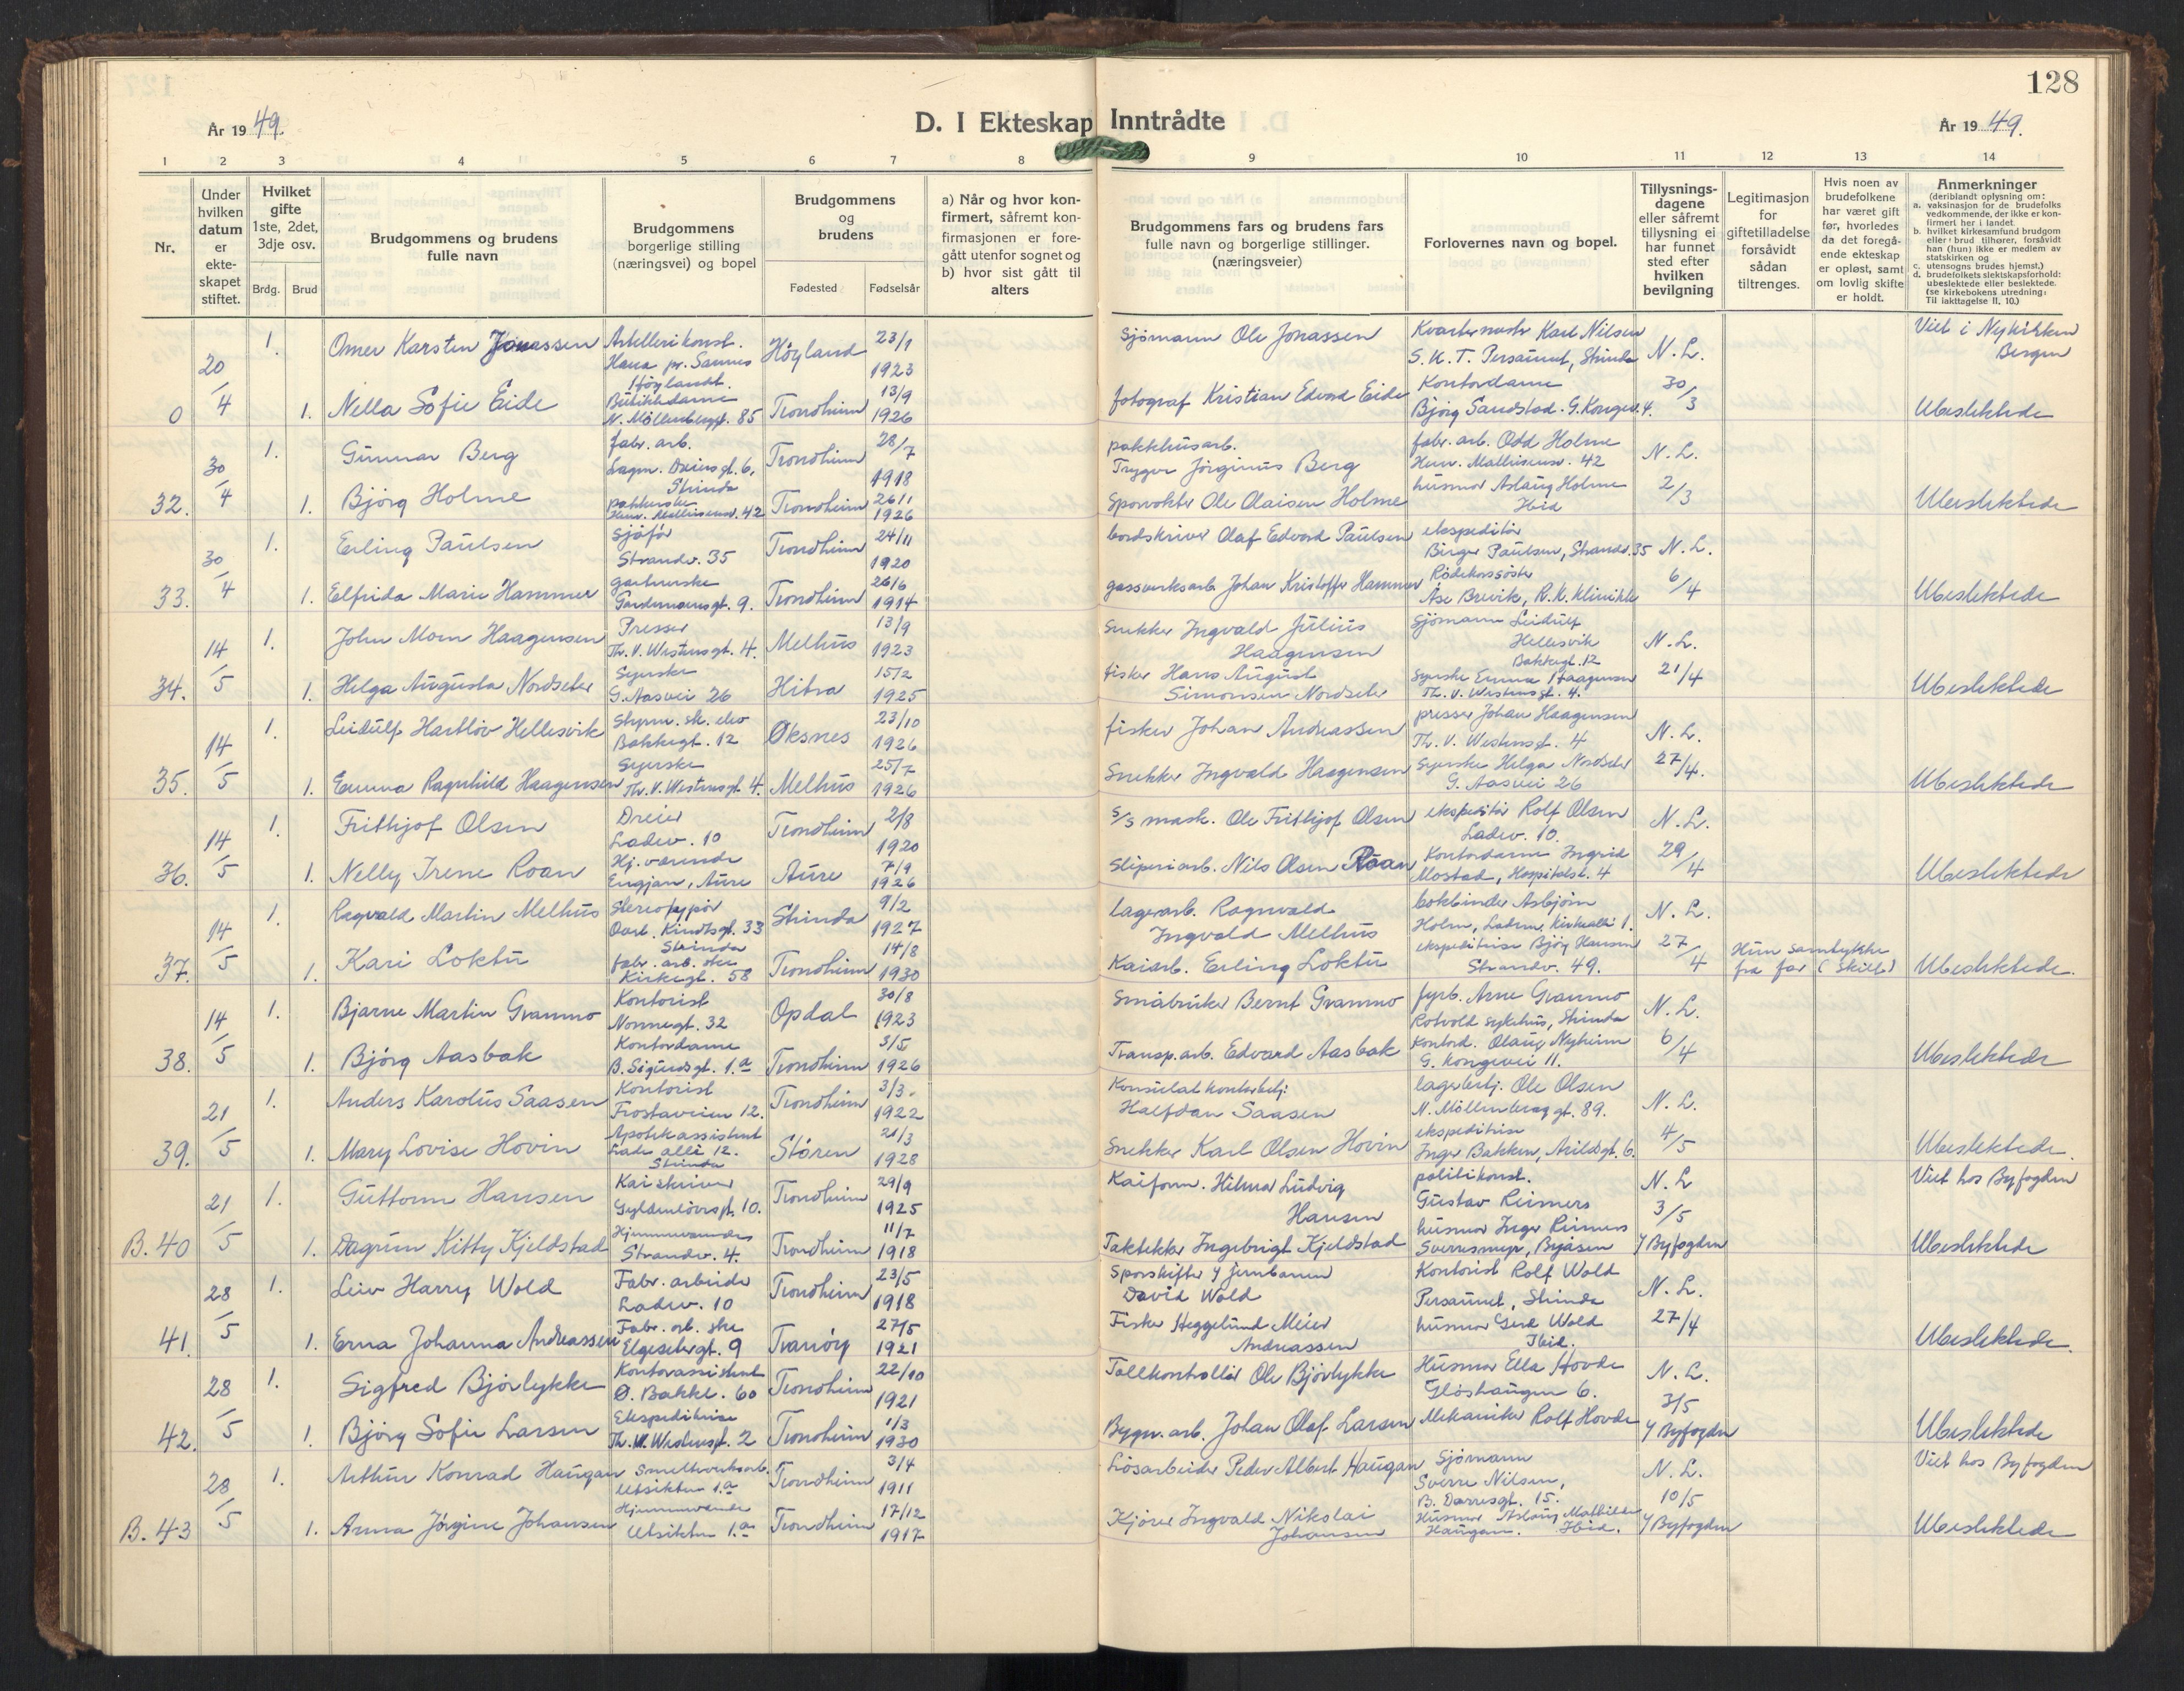 128
År 19 49.
D. I Ekteskap Inntrådte
År 19 49.
1 2 3 4 5 6 7 8 9 10 11 12 13 14
Nr.
Under hvilken datum er ekteskapet stiftet.
Hvilket gifte 1ste, 2det, 3dje osv.
Brdg. Brud
Brudgommens og brudens fulle navn
Brudgommens borgerlige stilling (næringsvei) og bopel
Brudgommens og brudens
Fødested Fødselsår
a) Når og hvor konfirmert, såfremt konfirmasjonen er foregått utenfor sognet og b) hvor sist gått til alters
Brudgommens fars og brudens fars fulle navn og borgerlige stillinger. (næringsveier)
Forlovernes navn og bopel.
Tillysningsdagene eller såfremt tillysning ei har funnet sted efter hvilken bevilgning
Legitimasjon for giftetilladelse forsåvidt sådan tiltrenges.
Hvis noen av brudefolkene har været gift før, hvorledes da det foregående ekteskap er opløst, samt om lovlig skifte er holdt.
Anmerkninger
(deriblandt oplysning om:
a. vaksinasjon for de brudefolks vedkommende, der ikke er konfirmert her i landet
b. hvilket kirkesamfund brudgom eller brud tilhører, forsåvidt han (hun) ikke er medlem av statskirken og
c. utensogns brudes hjemst.)
d. brudefolkets slektskapsforhold: ubeslektede eller beslektede. (se kirkebokens utredning: Til iakttagelse II. 10.)
0 20/4 1. Omer Karsten Jonassen Artillerikonst. Hana pr. Sannes Høyland. Høyland 23/1 1923 Sjømann Ole Jonassen Karl Nilsen S.K.T. Persaunet, Strinda N.L. Viet i Nykirken Bergen
1. Nella Sofie Eide Butikkdame N. Møllenberggt. 85 Trondheim 13/9 1926 fotograf Kristian Edvard Eide Kontordame Bjørg Sandstad. G. Kongev. 4. 30/3 Ubeslektede
32. 30/4 1. Gunnar Berg fabr. arb. Lagm. Dreiersgt. 6, Strinda Trondheim 28/7 1918 pakkhusarb. Trygve Jørginus Berg fabr. arb. Odd Holme Henr. Mathisensv. 42 N.L.
1. Bjørg Holme pakkerske Henr. Mathisensv. 42 Trondheim 26/1 1926 Sporvokter Ole Olaisen Holme husmor Aslaug Holme Ibid 2/3 Ubeslektede
33. 30/4 1. Erling Paulsen Sjåfør Strandv. 35 Trondheim 24/11 1920 bordskriver Olaf Edvard Paulsen ekspeditør Birger Paulsen, Strandv. 35 N.L.
1. Elfrida Marie Hammer gartnerske Gardemoensgt. 9. Trondheim 26/6 1914 gassverksarb. Johan Kristoffer Hammer Rødekorssøster Åse Brevik, R.K. klinikk 6/4 Ubeslektede
34. 14/5 1. John Moen Haagensen Presser Th. V. Westensgt. 4. Melhus 13/9 1923 Snekker Ingvald Julius Haagensen Sjømann Leidulf Hellesvik Bakkegt. 12 N.L.
1. Helga Augusta Nordseter Syerske G. Aasvei 26 Hitra 15/2 1925 fisker Hans August Simonsen Nordseter Syerske Emma Haagensen Th. V. Westensgt. 4. 21/4 Ubeslektede
35. 14/5 1. Leidulf Hartløv Hellesvik Styrm. sk. elev Bakkegt. 12 Øksnes 23/10 1926 fisker Johan Andreassen presser Johan Haagensen Th. V. Westensgt. 4 N.L.
1. Emma Ragnhild Haagensen Syerske Th. V. Westensgt. 4. Melhus 25/7 1926 Snekker Ingvald Haagensen Syerske Helga Nordseter G. Aasvei 26 27/4. Ubeslektede
36. 14/5 1. Frithjof Olsen Dreier Ladev. 10 Trondheim 2/8 1920 s/s mask. Ole Frithjof Olsen ekspeditør Rolf Olsen Ladev. 10. N.L.
1. Nelly Irene Roan Hj. værende Engjan, Aure Aure 7/9 1926 Sliperiarb. Nils Olsen Roan Kontordame Ingrid Mostad, Hospitalst. 4 29/4 Ubeslektede
37. 14/5 1. Ragvald Martin Melhus Stereotypør Oarl. Kindtsgt. 33 Strinda Strinda 9/2 1927 lagerarb. Ragnvald Ingvald Melhus bokbinder Asbjørn Holm, Ladem, kirkeallé 1. N.L.
1. Kari Loktu fabr. arb. ske Kirkegt. 58 Trondheim 14/8 1930 Kaiarb. Erling Loktu ekspeditrise Bjørg Hansen Strandv. 49. 27/4 Hun samtykke fra far (skilt) Ubeslektede.
38. 14/5 1. Bjarne Martin Gvammo Kontorist Nonnegt. 32 Opdal 30/8 1923 Småbruker Bernt Gvammo fyrb. Arne Gvammo Rotvold sykehus, Strinda N.L.
1. Bjørg Aasbak Kontordame B. Sigurdsgt. 1.a Trondheim 3/5 1926 Transp. arb. Edvard Aasbak Kontord. Olaug Nyheim G. Kongevei 11. 6/4 Ubeslektede
39. 21/5 1. Anders Karolus Saasen Kontorist Frostaveien 12. Trondheim 3/3. 1922 Konsulat kontorbetj. Halfdan Saasen lagerbetj. Ole Olsen N. Møllenberggt. 89. N.L.
1. Mary Lovise Hovin Apotekassistent Lade allé 12. Strinda Støren 21/3 1928 Snekker Karl Olsen Hovin ekspeditrise Inger Bakken, Arildsgt. 6. 4/5 Ubeslektede.
B. 40 21/5 1. Guttorm Hansen Kaiskriver Gyldenløvesgt. 10. Trondheim 29/9 1925 Kaiform. Hilmar Ludvig Hansen politikonst. Gustav Reimers N.L. Viet hos Byfogden
1. Dagrun Kitty Kjeldstad Hjemmeværende Strandv. 4. Trondheim 11/7 1918 Taktekker Ingebrigt Kjeldstad husmor Inger Reimers Sverresmyr, Byåsen 3/5 Byfogden Ubeslektede
41. 28/5 1. Leiv Harry Wold Fabr. arbeider Ladev. 10 Trondheim 23/5 1918 Sporskifter v jernbanen David Wold Kontorist Rolf Wold Persaunet, Strinda N.L.
1. Erna Johanna Andreassen Fabr. arb. ske Elgesetergt. 9 Tranøy 27/5 1921 Fisker Heggelund Meier Andreassen husmor Gerd Wold Ibid. 27/4 Ubeslektede.
42. 28/5 1. Sigfred Bjørlykke Kontorassistent Ø. Bakkl. 60 Trondheim 22/10 1921 Tollkontrollør Ole Bjørlykke Husmor Ella Hovde Gløshaugen 6. N.L.
1. Bjørg Sofie Larsen Ekspeditrise Th. W. Westensgt. 2 Trondheim 1/3 1930 Bygn. arb. Johan Olaf Larsen Mekaniker Rolf Hovde 3/5 Byfogden Ubeslektede
B. 43 28/5 1. Arthur Konrad Haugan Smelteverksarb. Utsikten 1.a Trondheim 3/4 1911 Løsarbeider Peder Albert Haugan Sjømann Sverre Nilsen, B. Darresgt. 15. N.L. Viet hos Byfogden
1. Anna Jørgine Johansen Hjemmeværende Utsikten 1.a Trondheim 17/12 1917 Kjører Ingvald Nikolai Johansen Husmor Aslaug Mathilde Haugan. Ibid. 10/5 Byfogden Ubeslektede